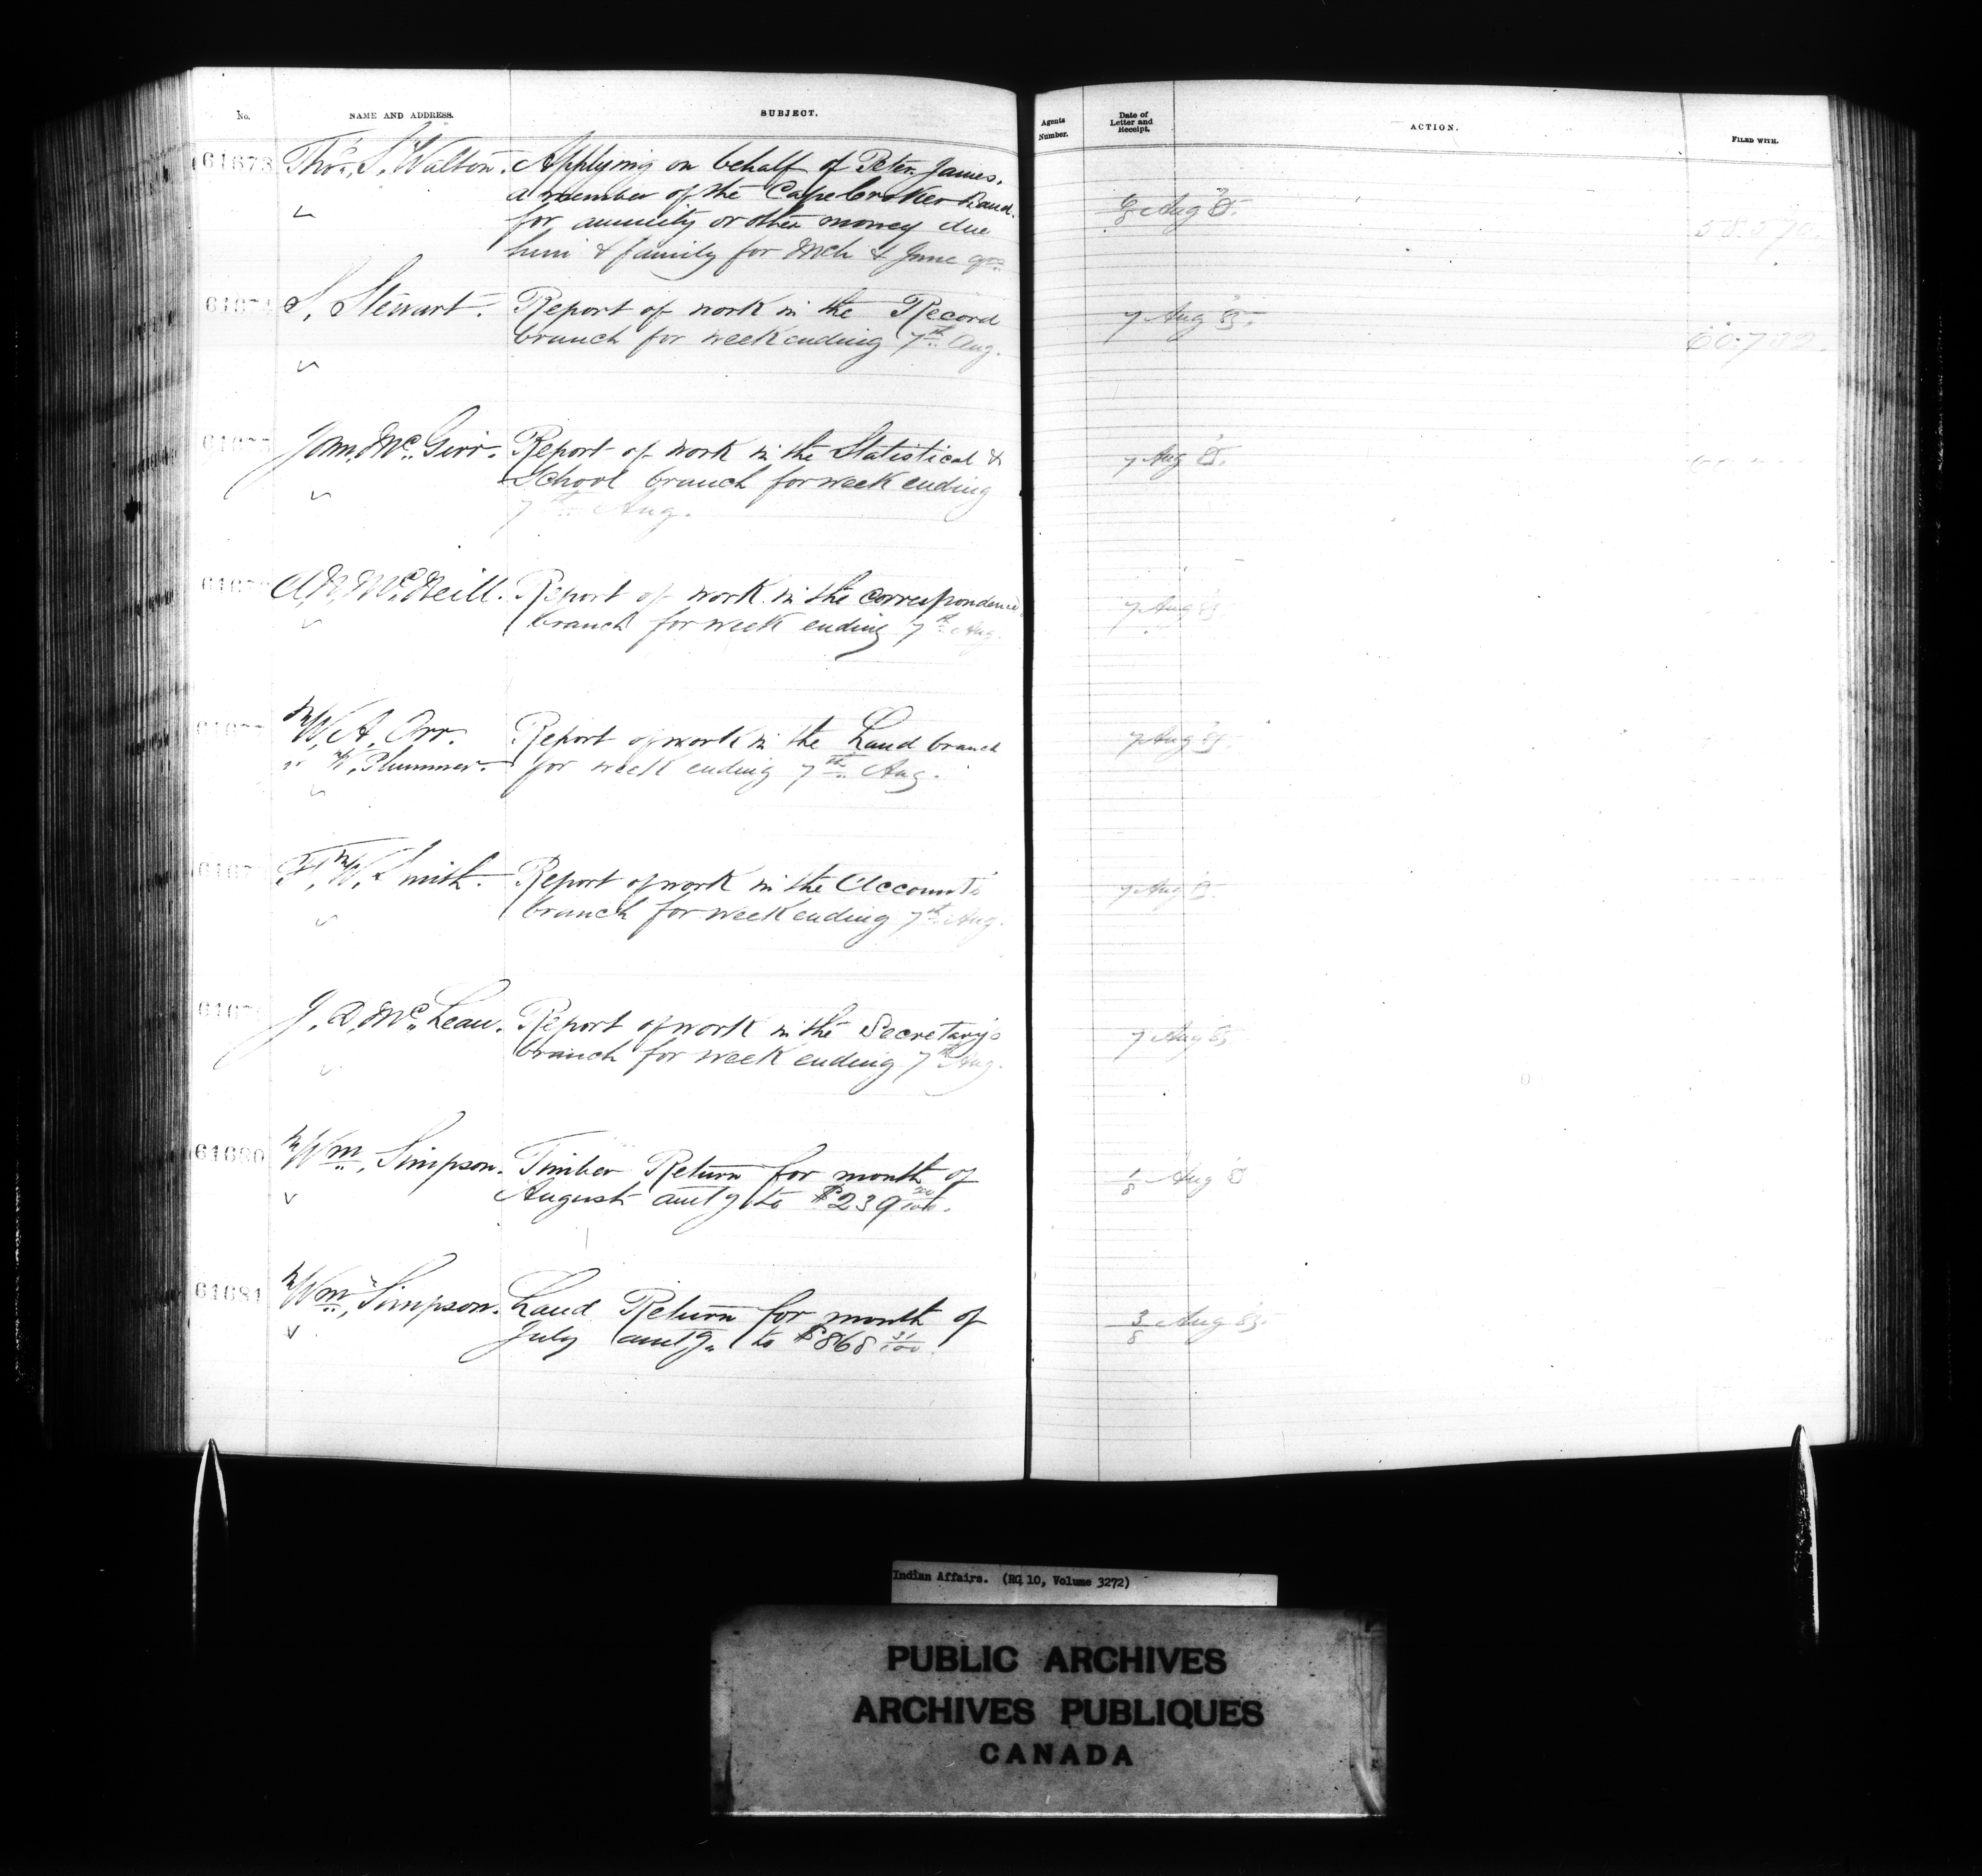 No. NAME AND ADDRESS. SUBJECT. Agents Number. Date of Letter and Receipt. ACTION. FILED WITH.
61673 Thos. S. Walton. Applying on behalf of Peter James,
a member of the Cape Croker Band.
for annuity or other money due
him & family for Mch & June qrs
Aug 85.
S. Stewart. Report of work in the Record
branch for week ending 7th Aug.
7 Aug 85.
John McGirr. Report of work in the Statistical &
School branch for week ending
7th Aug.
7 Aug 85.
A.N. McNeill. Report of work in the Correspondence
branch for week ending 7th Aug.
7 Aug 85
W. A. Orr. Report of work in the Land branch
W. Plummer. for week ending 7th Aug.
7 Aug 85.
F. W. Smith. Report of work in the Accounts
branch for week ending 7th Aug.
7 Aug 85.
J. D. McLean. Report of work in the Secretary's
branch for week ending 7th Aug.
7 Aug 85
61680 Wm. Simpson. Timber Return for month of
August amtg to $239
1/8 Aug
61681 Wm. Simpson. Land Return for month of
July amtg. to $868 31/100.
3/8 Aug 85.
Indian Affairs. (RG 10, Volume 3272)
PUBLIC ARCHIVES
ARCHIVES PUBLIQUES
CANADA